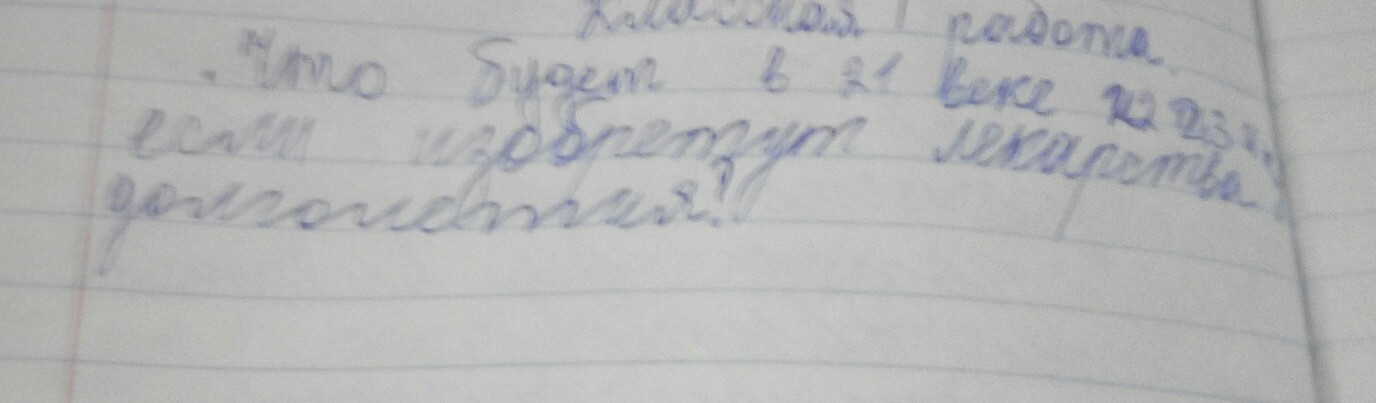 Классная работа
Что будет в 21 веке 22 23 в.
если изобретут лекарства
долголетия?